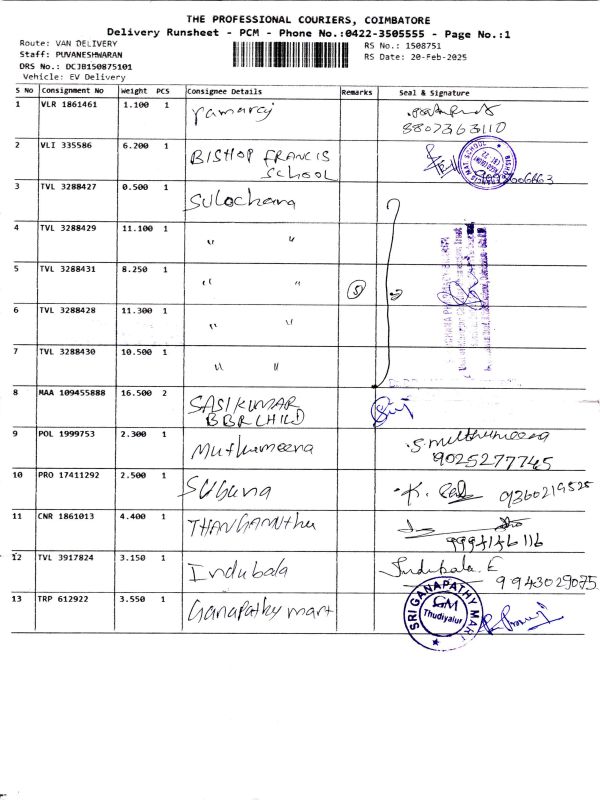 THE PROFESSIONAL COURIERS, COIMBATORE
Delivery Runsheet - PCM - Phone No.:0422-3505555 - Page No.:1
Route: VAN DELIVERY
RS No.: 1508751
Staff: PUVANESHWARAN
RS Date: 20-Feb-2025
DRS No.: DCJB150875101
Vehicle: EV Delivery
S No Consignment No Weight PCS Consignee Details Remarks Seal & Signature
1 VLR 1861461 1.100 1 ramaraj
8807363110
2 VLI 335586 6.200 1 BISHOP FRANCIS
SCHOOL
3 TVL 3288427 0.500 1 Sulochana
4 TVL 3288429 11.100 1 " "
5 TVL 3288431 8.250 1 " " 5
6 TVL 3288428 11.300 1 " "
7 TVL 3288430 10.500 1 " "
8 MAA 109455888 16.500 2 SASIKUMAR
BBRLHILD
9 POL 1999753 2.300 1 Muthumeena S.muthumeena
9025277745
10 PRO 17411292 2.500 1 Suguna K. 9360219525
11 CNR 1861013 4.400 1
9994146116
12 TVL 3917824 3.150 1 Indubala Indubala.E
9943029075
13 TRP 612922 3.550 1 Ganapathy mart
SRI GANAPATHY MART
GM
Thudiyalur